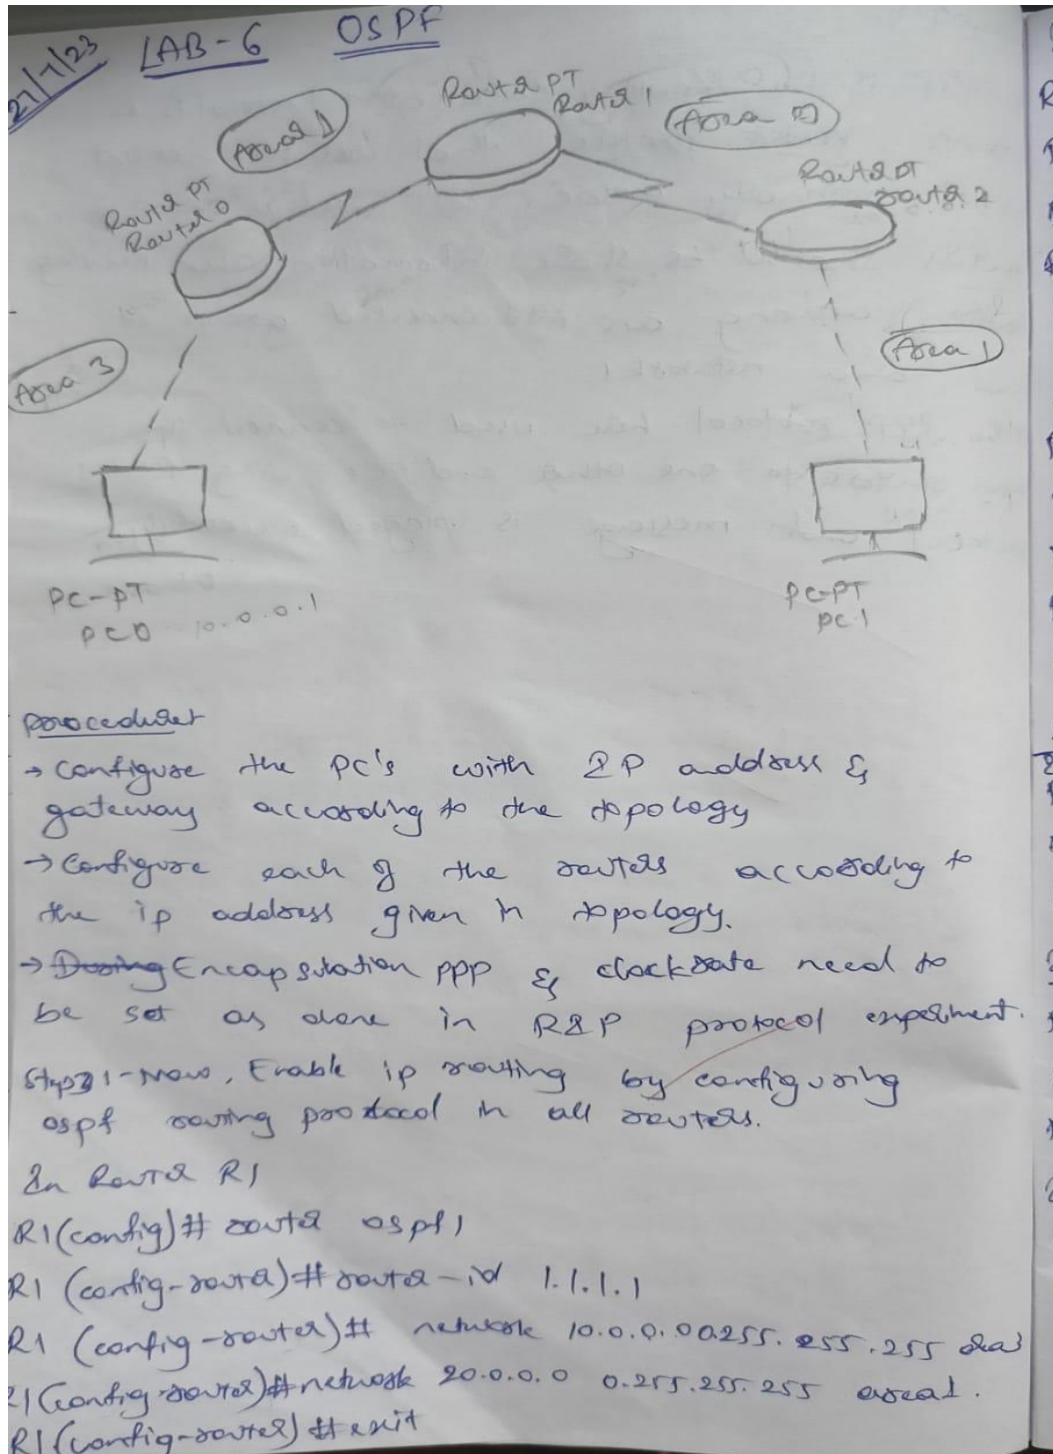 27/7/23 LAB-6 OSPF
Router PT
Router 1
Area 1
Router PT
Router 0
Router PT
router 2
Area 3
Area 1
PC-PT
PC0 10.0.0.1
PC-PT
PC.1
Procedure
→ Configure the PC's with IP address &
gateway according to the topology
→ Configure each of the routers according to
the ip address given in topology.
→ Encapsulation PPP & clockrate need to
be set as done in RIP protocol experiment.
Step 1-Now, Enable ip routing by configuring
ospf routing protocol in all routers.
In Router R1
R1(config)# router ospf 1
R1 (config-router)# router-id 1.1.1.1
R1 (config-router)# network 10.0.0.0 0.255.255.255 area 3
R1(config-router)#network 20.0.0.0 0.255.255.255 area 1.
R1(config-router)#exit